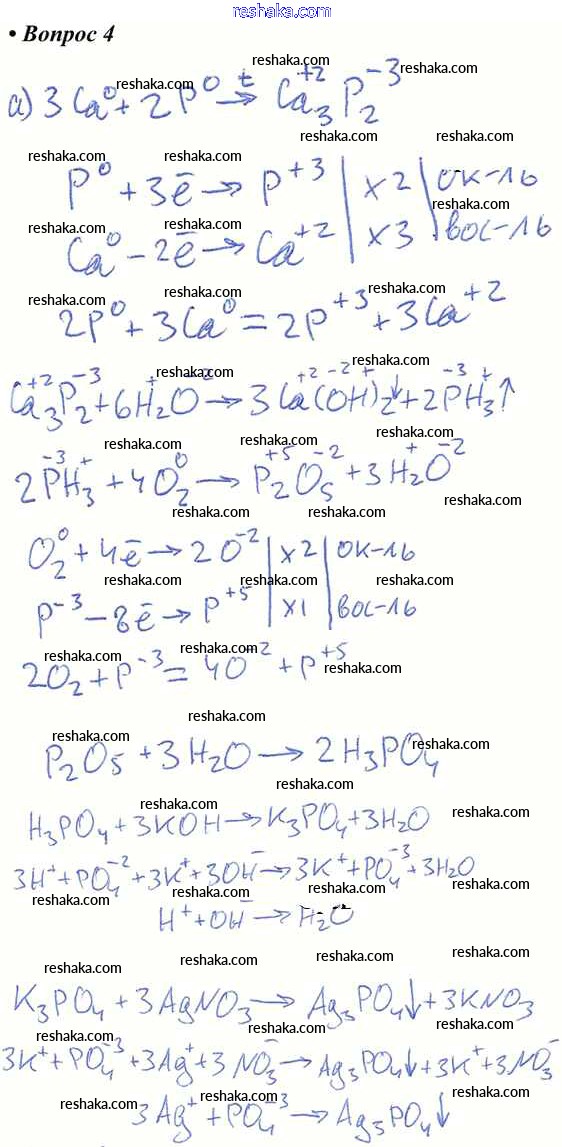 reshaka.com
• Вопрос 4
а) 3Ca⁰ + 2P⁰ →ᵗ Ca₃⁺²P₂⁻³
P⁰ + 3ē → P⁺³ | x2 | ок-ль
Ca⁰ - 2ē → Ca⁺² | x3 | вос-ль
2P⁰ + 3Ca⁰ = 2P⁺³ + 3Ca⁺²
Ca₃⁺²P₂⁻³ + 6H₂⁺O⁻² → 3Ca⁺²(O⁻²H⁺)₂↓ + 2P⁻³H₃⁺↑
2P⁻³H₃⁺ + 4O₂⁰ → P₂⁺⁵O₅⁻² + 3H₂⁺O⁻²
O₂⁰ + 4ē → 2O⁻² | x2 | ок-ль
P⁻³ - 8ē → P⁺⁵ | x1 | вос-ль
2O₂ + P⁻³ = 4O⁻² + P⁺⁵
P₂O₅ + 3H₂O → 2H₃PO₄
H₃PO₄ + 3KOH → K₃PO₄ + 3H₂O
3H⁺ + PO₄⁻² + 3K⁺ + 3OH⁻ → 3K⁺ + PO₄⁻³ + 3H₂O
H⁺ + OH⁻ → H₂O
K₃PO₄ + 3AgNO₃ → Ag₃PO₄↓ + 3KNO₃
3K⁺ + PO₄⁻³ + 3Ag⁺ + 3NO₃⁻ → Ag₃PO₄↓ + 3K⁺ + 3NO₃⁻
3Ag⁺ + PO₄⁻³ → Ag₃PO₄↓